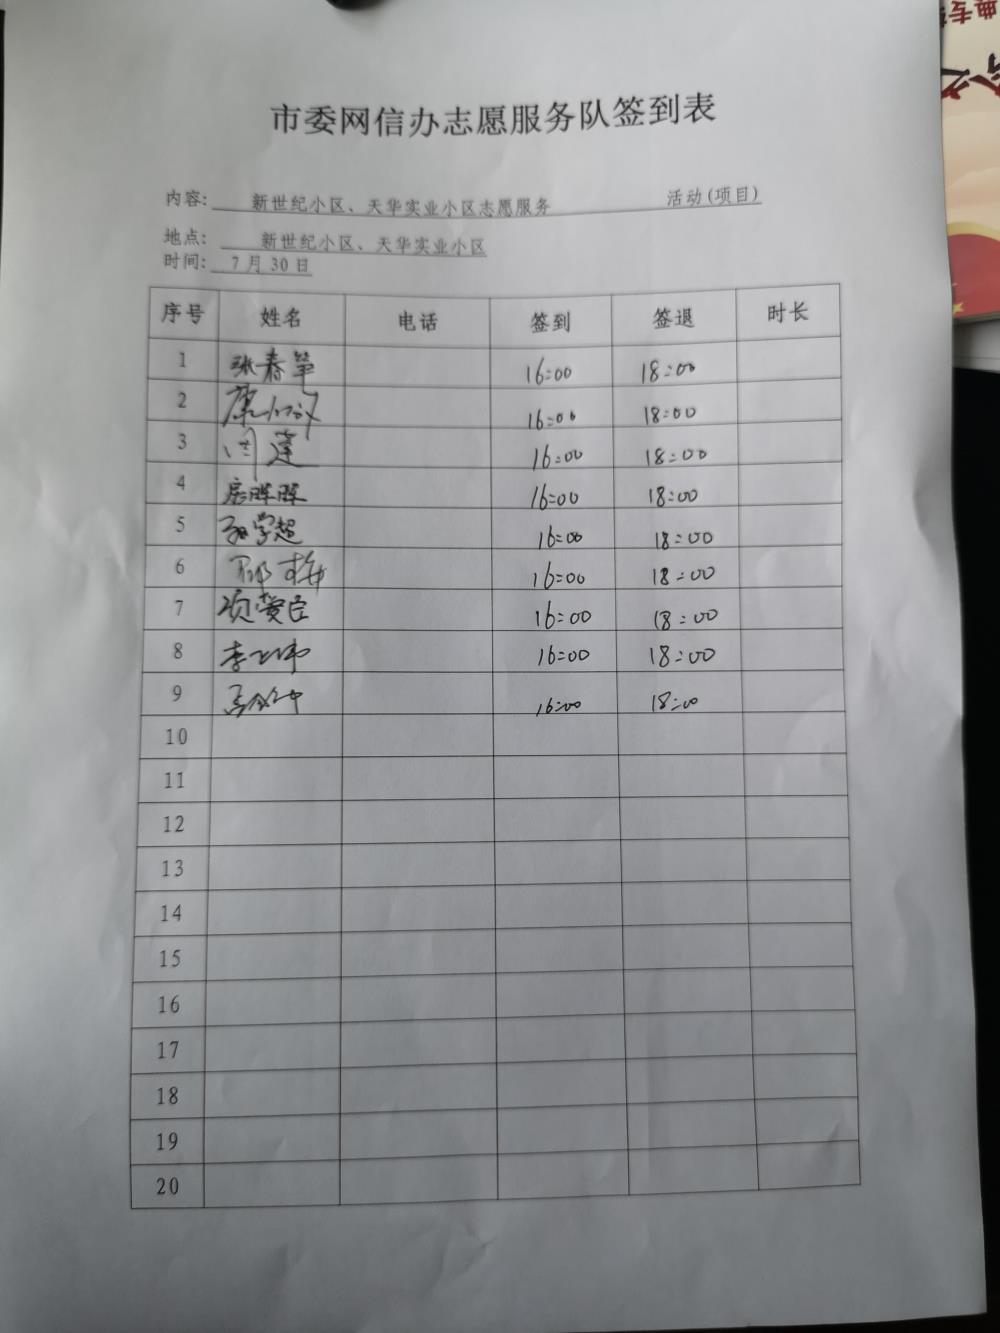 市委网信办志愿服务队签到表
内容: 新世纪小区、天华实业小区志愿服务 活动(项目)
地点: 新世纪小区、天华实业小区
时间: 7月30日
序号 姓名 电话 签到 签退 时长
1 张春笋 16:00 18:00
2 16:00 18:00
3 闫莲 16:00 18:00
4 房晖晖 16:00 18:00
5 学超 16:00 18:00
6 梅 16:00 18:00
7 16:00 18:00
8 李 16:00 18:00
9 16:00 18:00
10
11
12
13
14
15
16
17
18
19
20